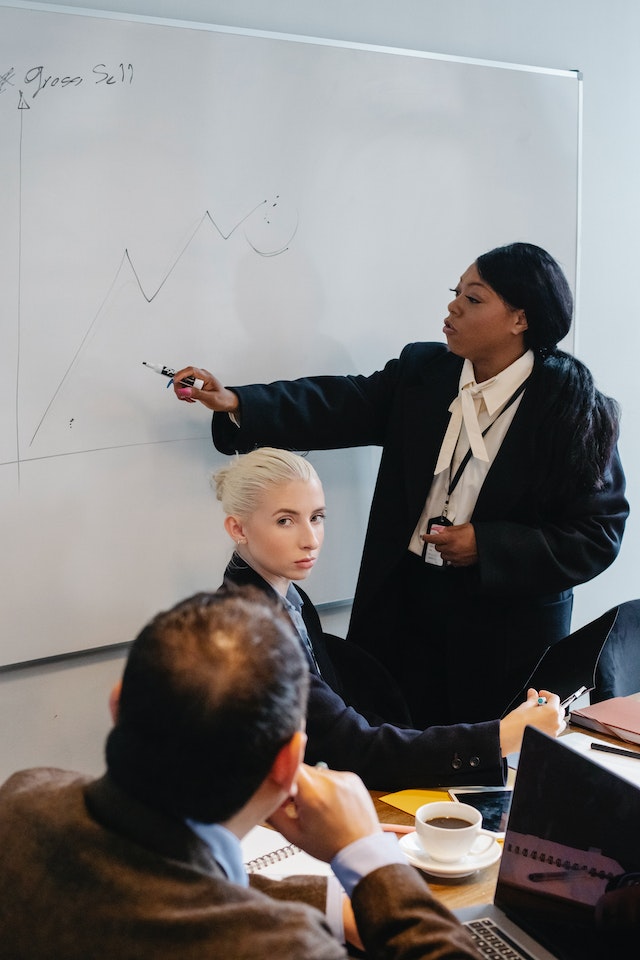 Gross Sell